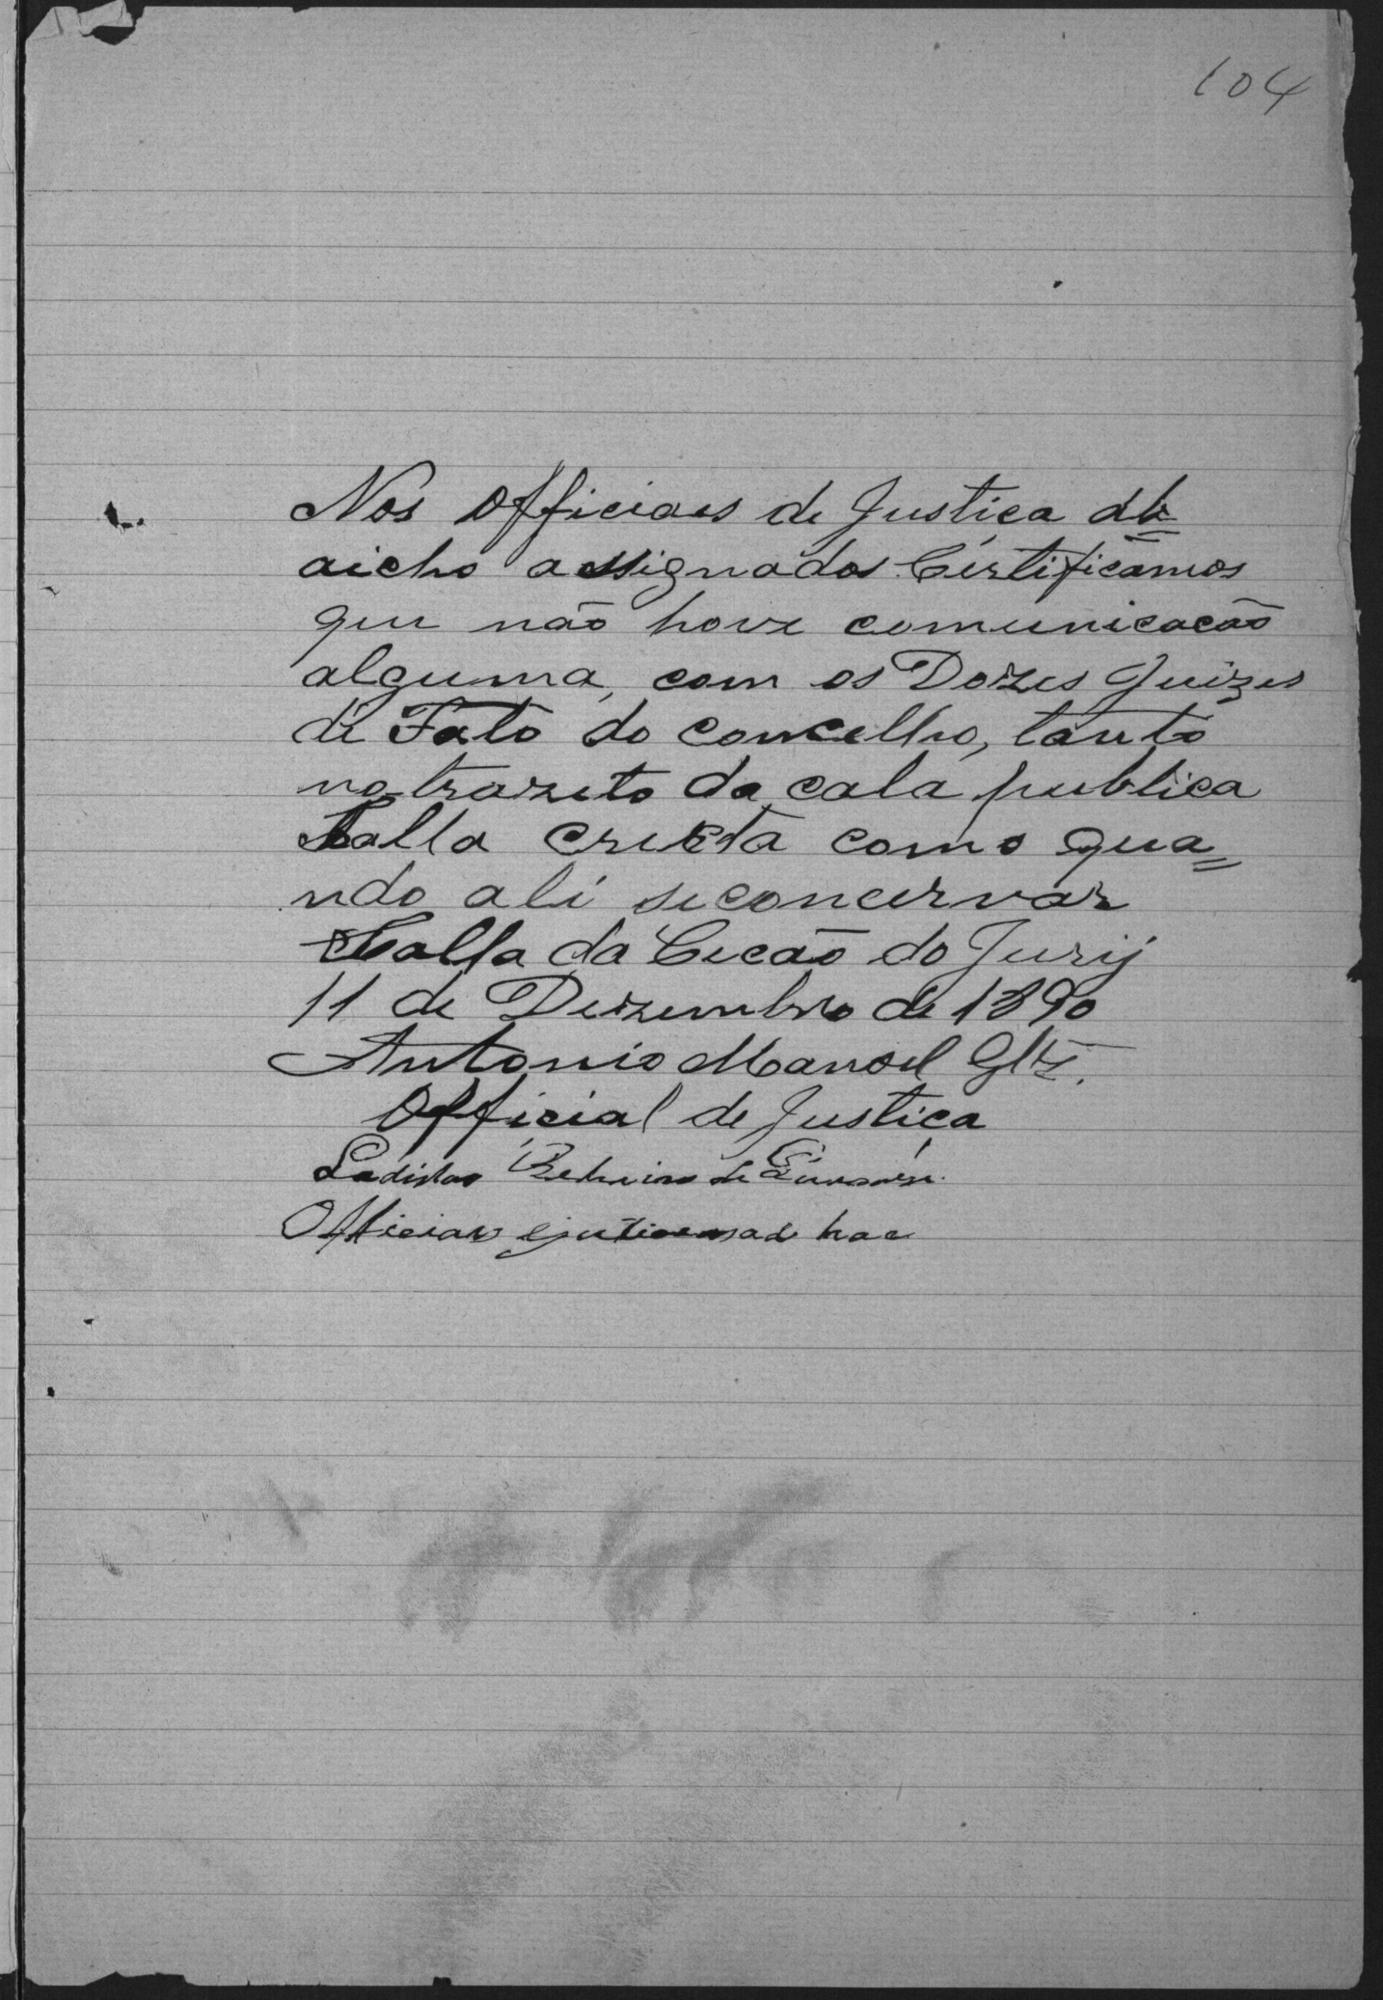 104
Nos Officiaes de Justica ab=
aicho assignados Certificamos
que não hove comunicacão
alguma, com os Dozes Juizes
de Fato do concelho, tanto
no trazeto da cala publica
Salla creeta como qua=
ndo ali se concervar
Salla da Cecão do Jurij
11 de Dezembro de 1890
Antonio Manoel
Official de Justiça
Ladislao de
Officiar hoc